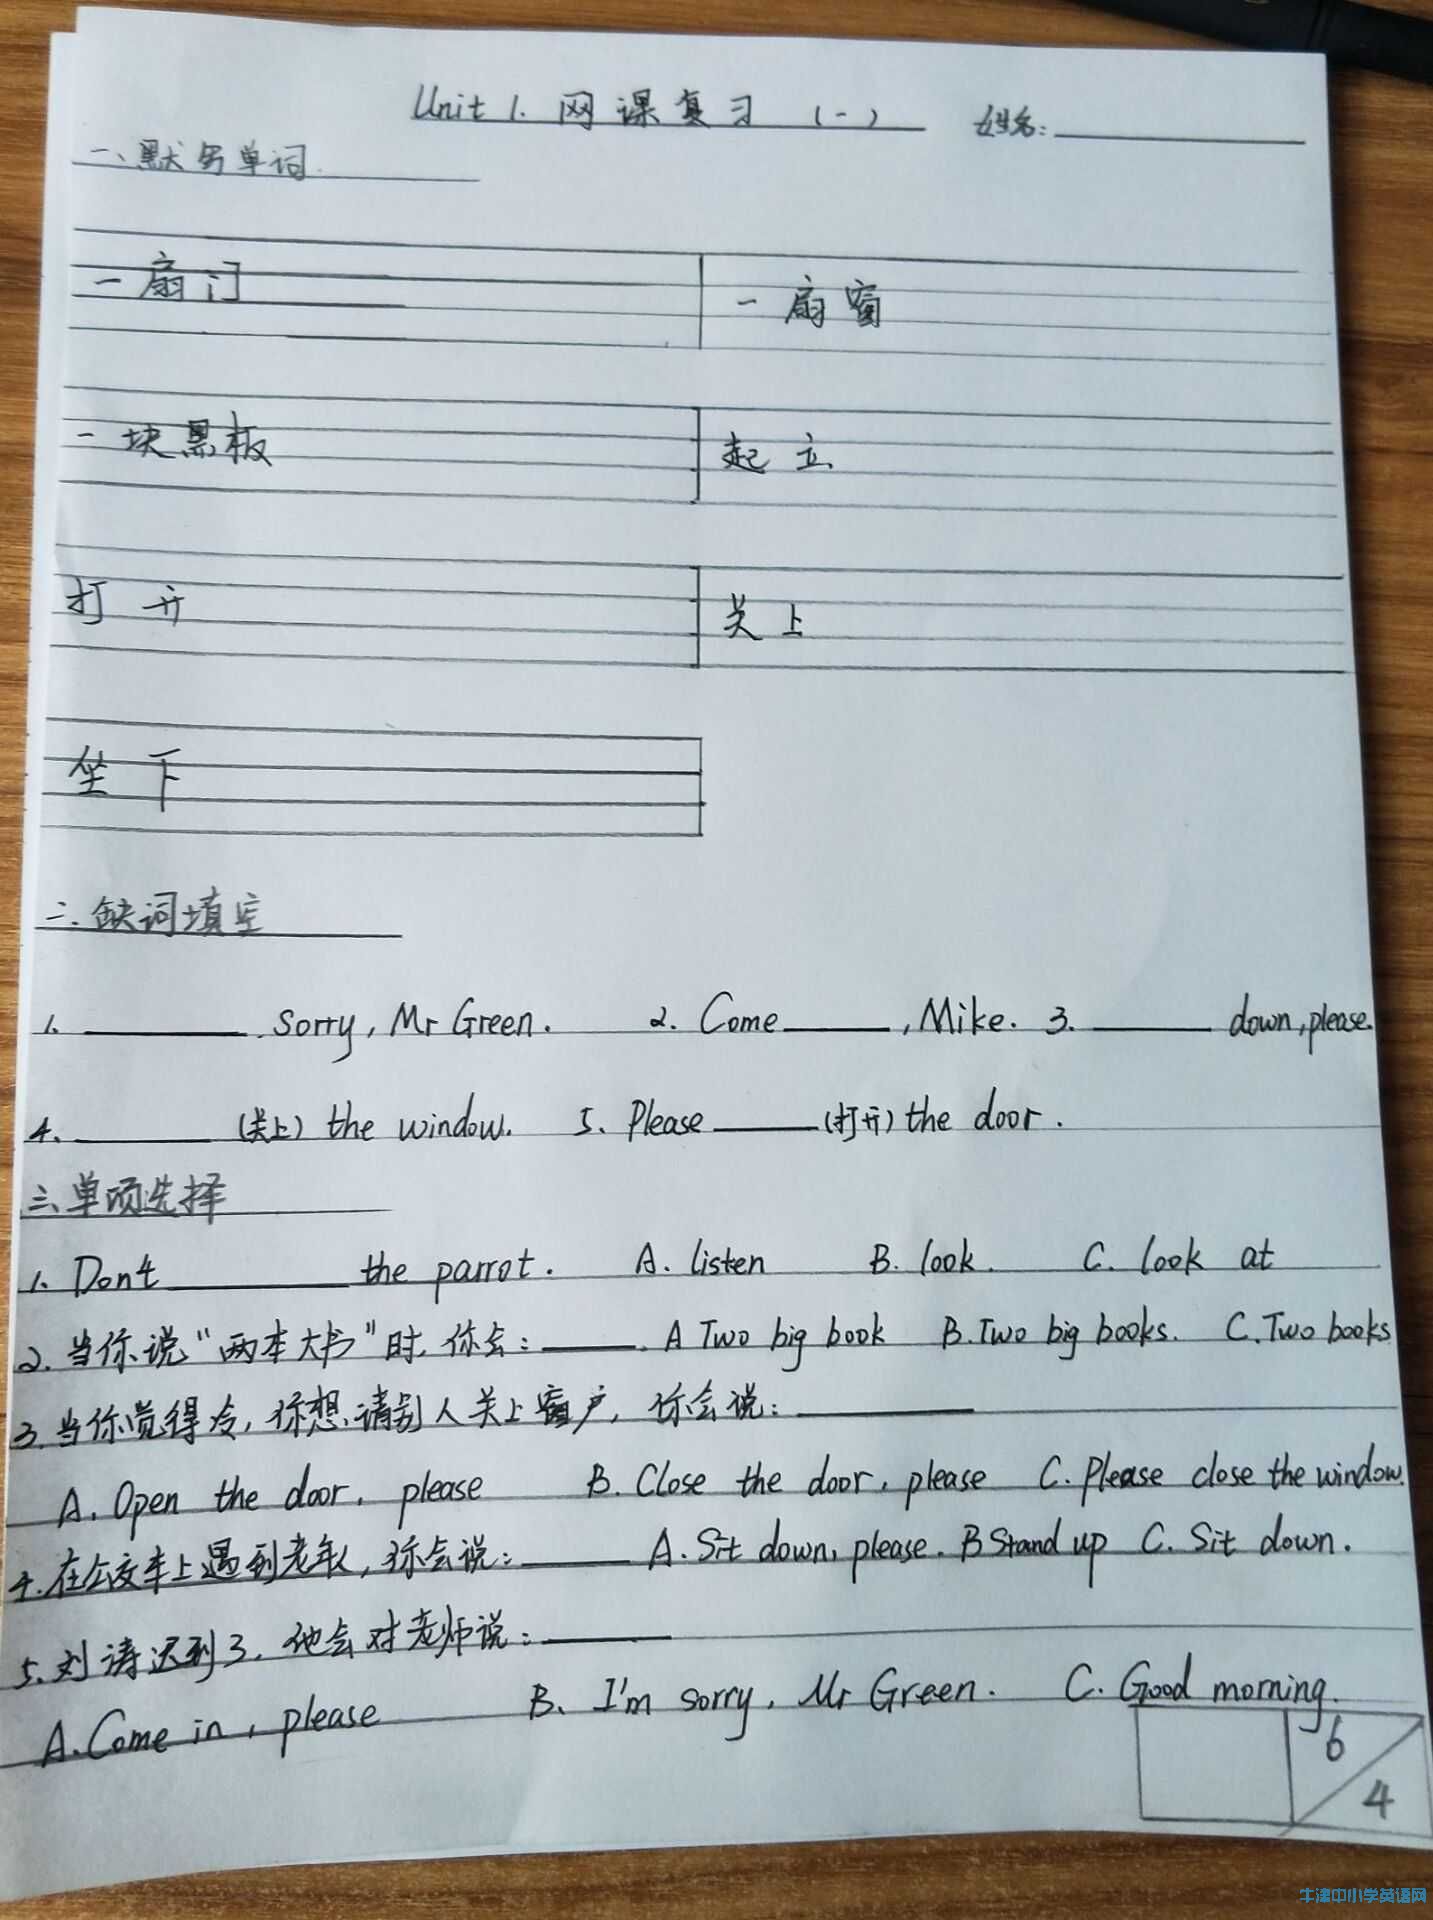 Unit 1. 网课复习 (一) 姓名:
一、默写单词.
一扇门 一扇窗
一块黑板 起立
打开 关上
坐下
二、缺词填空
1. ________ sorry, Mr Green. 2. Come ________, Mike. 3. ________ down, please.
4. ________ (关上) the window. 5. Please ________ (打开) the door.
三、单项选择
1. Don't ________ the parrot. A. listen B. look. C. look at
2. 当你说“两本大书”时, 你会: ________. A Two big book B. Two big books. C. Two books
3. 当你觉得冷, 你想请别人关上窗户, 你会说: ________
A. Open the door, please B. Close the door, please C. Please close the window.
4. 在公交车上遇到老年人, 你会说: ________ A. Sit down, please. B Stand up C. Sit down.
5. 刘涛迟到了, 他会对老师说: ________
A. Come in, please B. I'm sorry, Mr Green. C. Good morning.
6
4
牛津中小学英语网